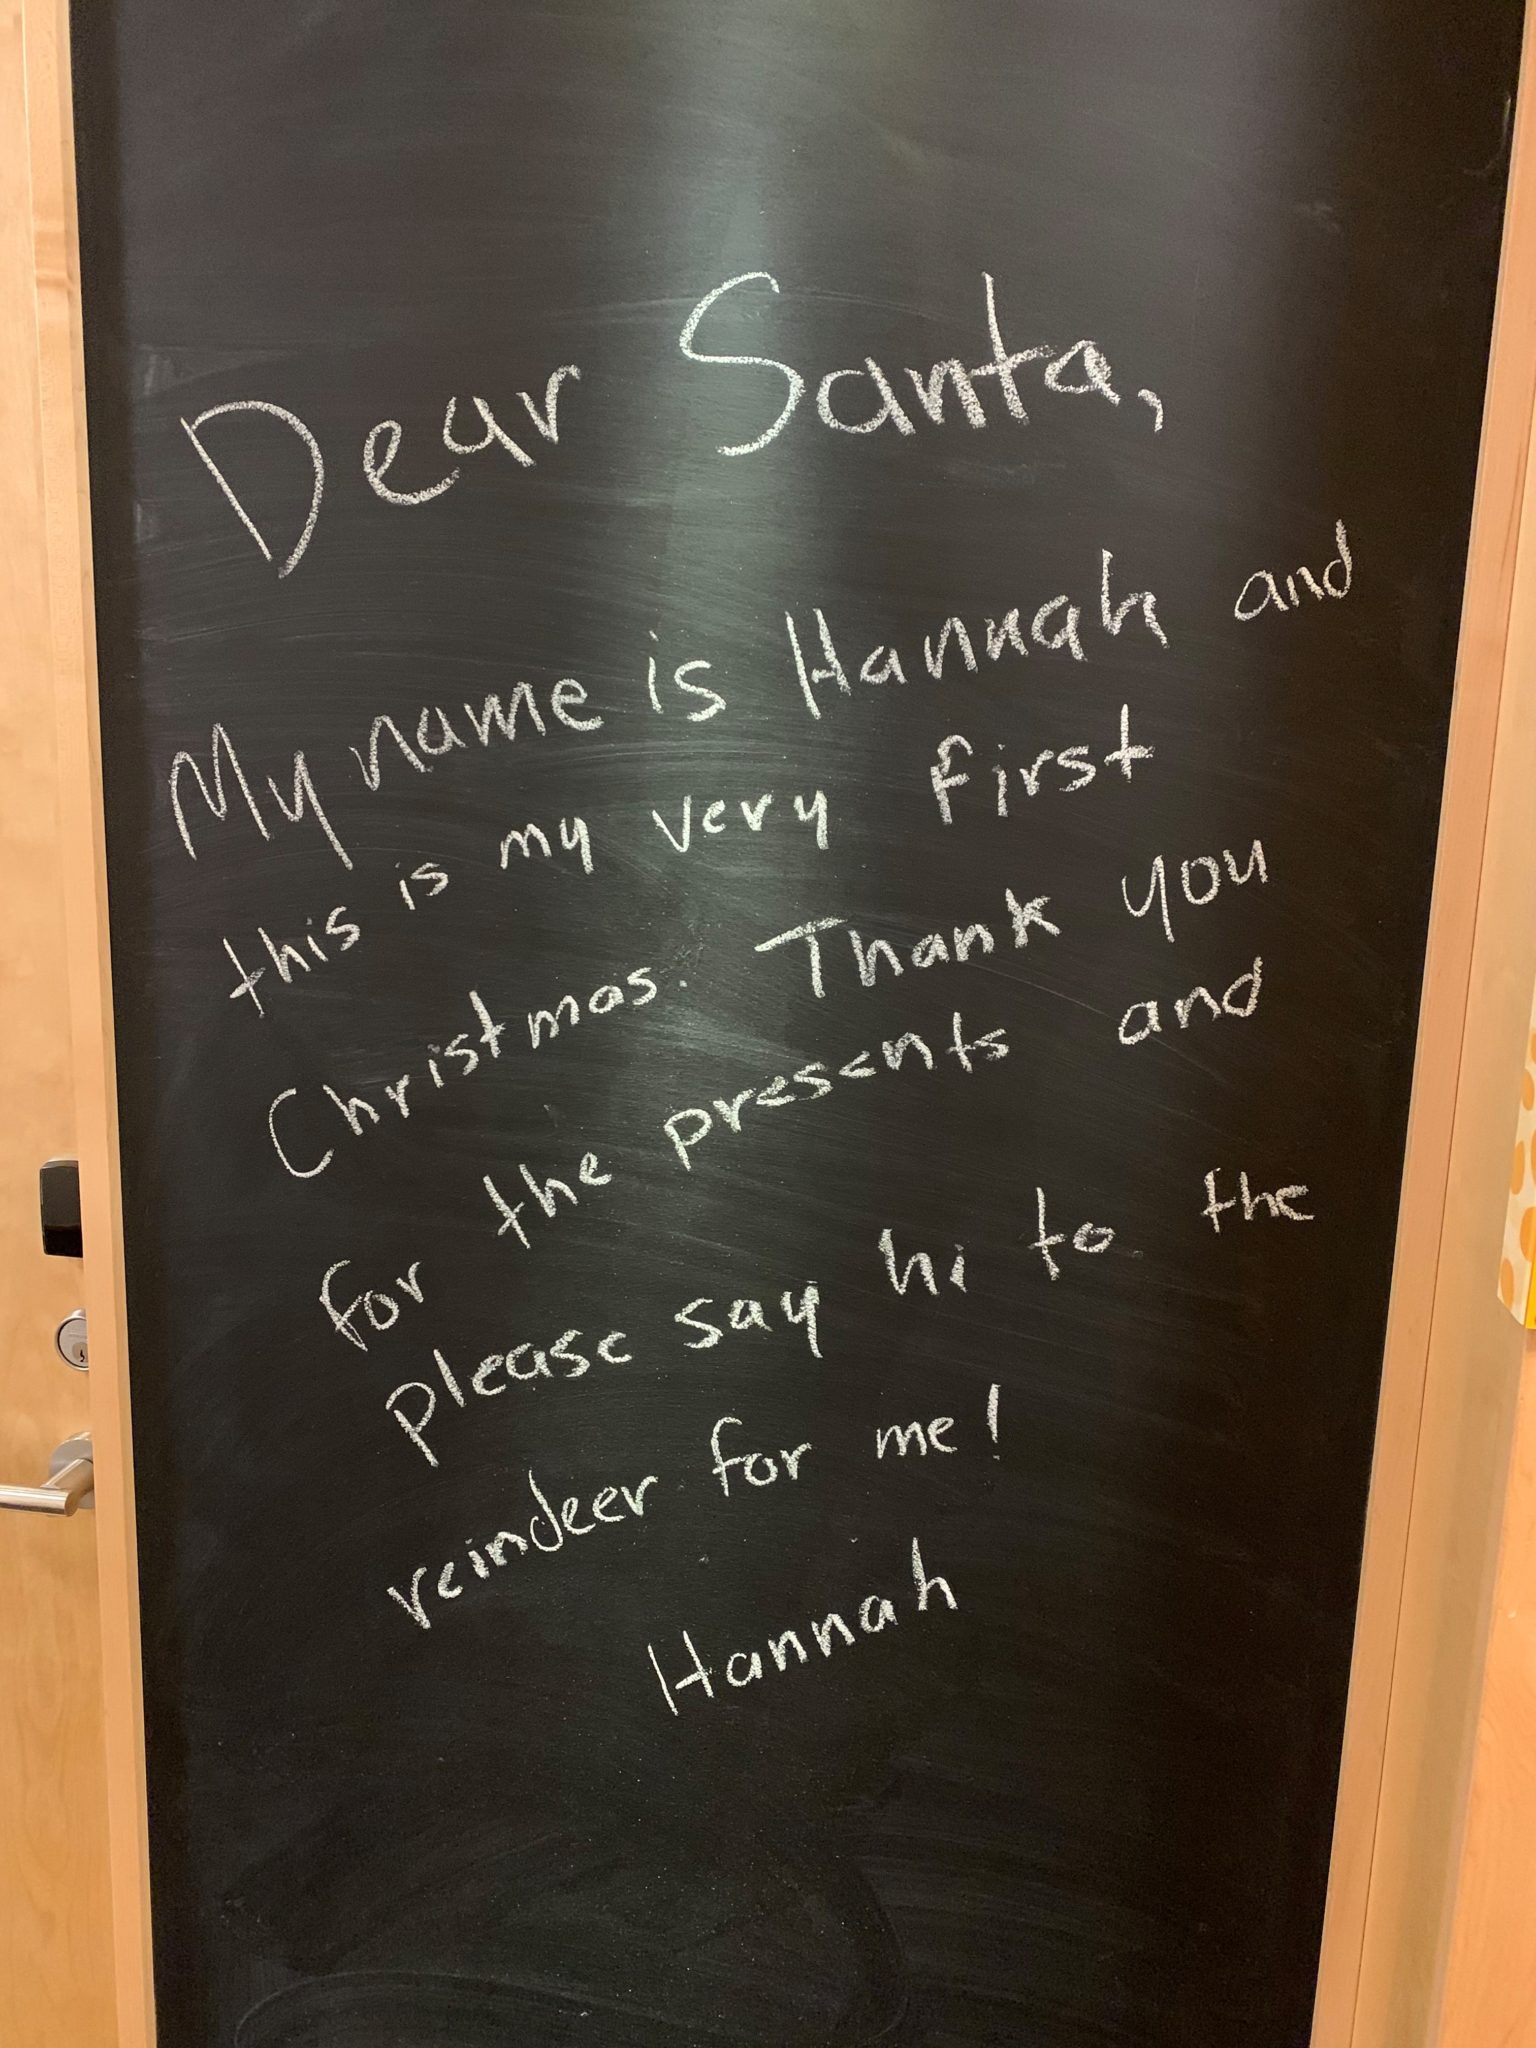 Dear Santa,
My name is Hannah and
this is my very first
Christmas. Thank you
for the presents and
please say hi to the
reindeer for me!
Hannah